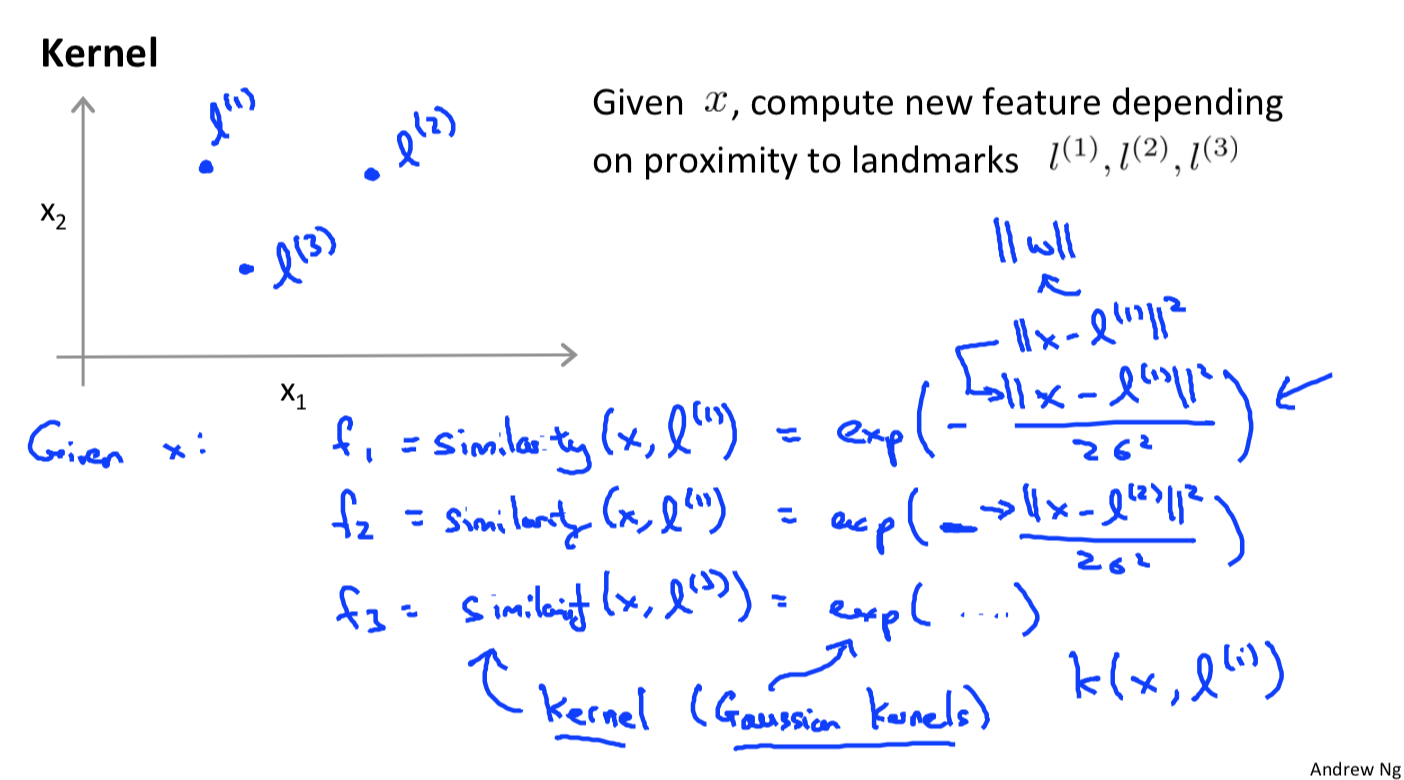 Kernel
Given x, compute new feature depending
on proximity to landmarks l^(1), l^(2), l^(3)
l^(1)
l^(2)
l^(3)
x₂
x₁
||w||
||x - l^(1)||²
Given x: f₁ = similarity(x, l^(1)) = exp(- ||x - l^(1)||² / 2σ²)
f₂ = similarity(x, l^(1)) = exp(- ||x - l^(2)||² / 2σ²)
f₃ = similarity(x, l^(3)) = exp(....)
kernel (Gaussian kernels)
k(x, l^(i))
Andrew Ng